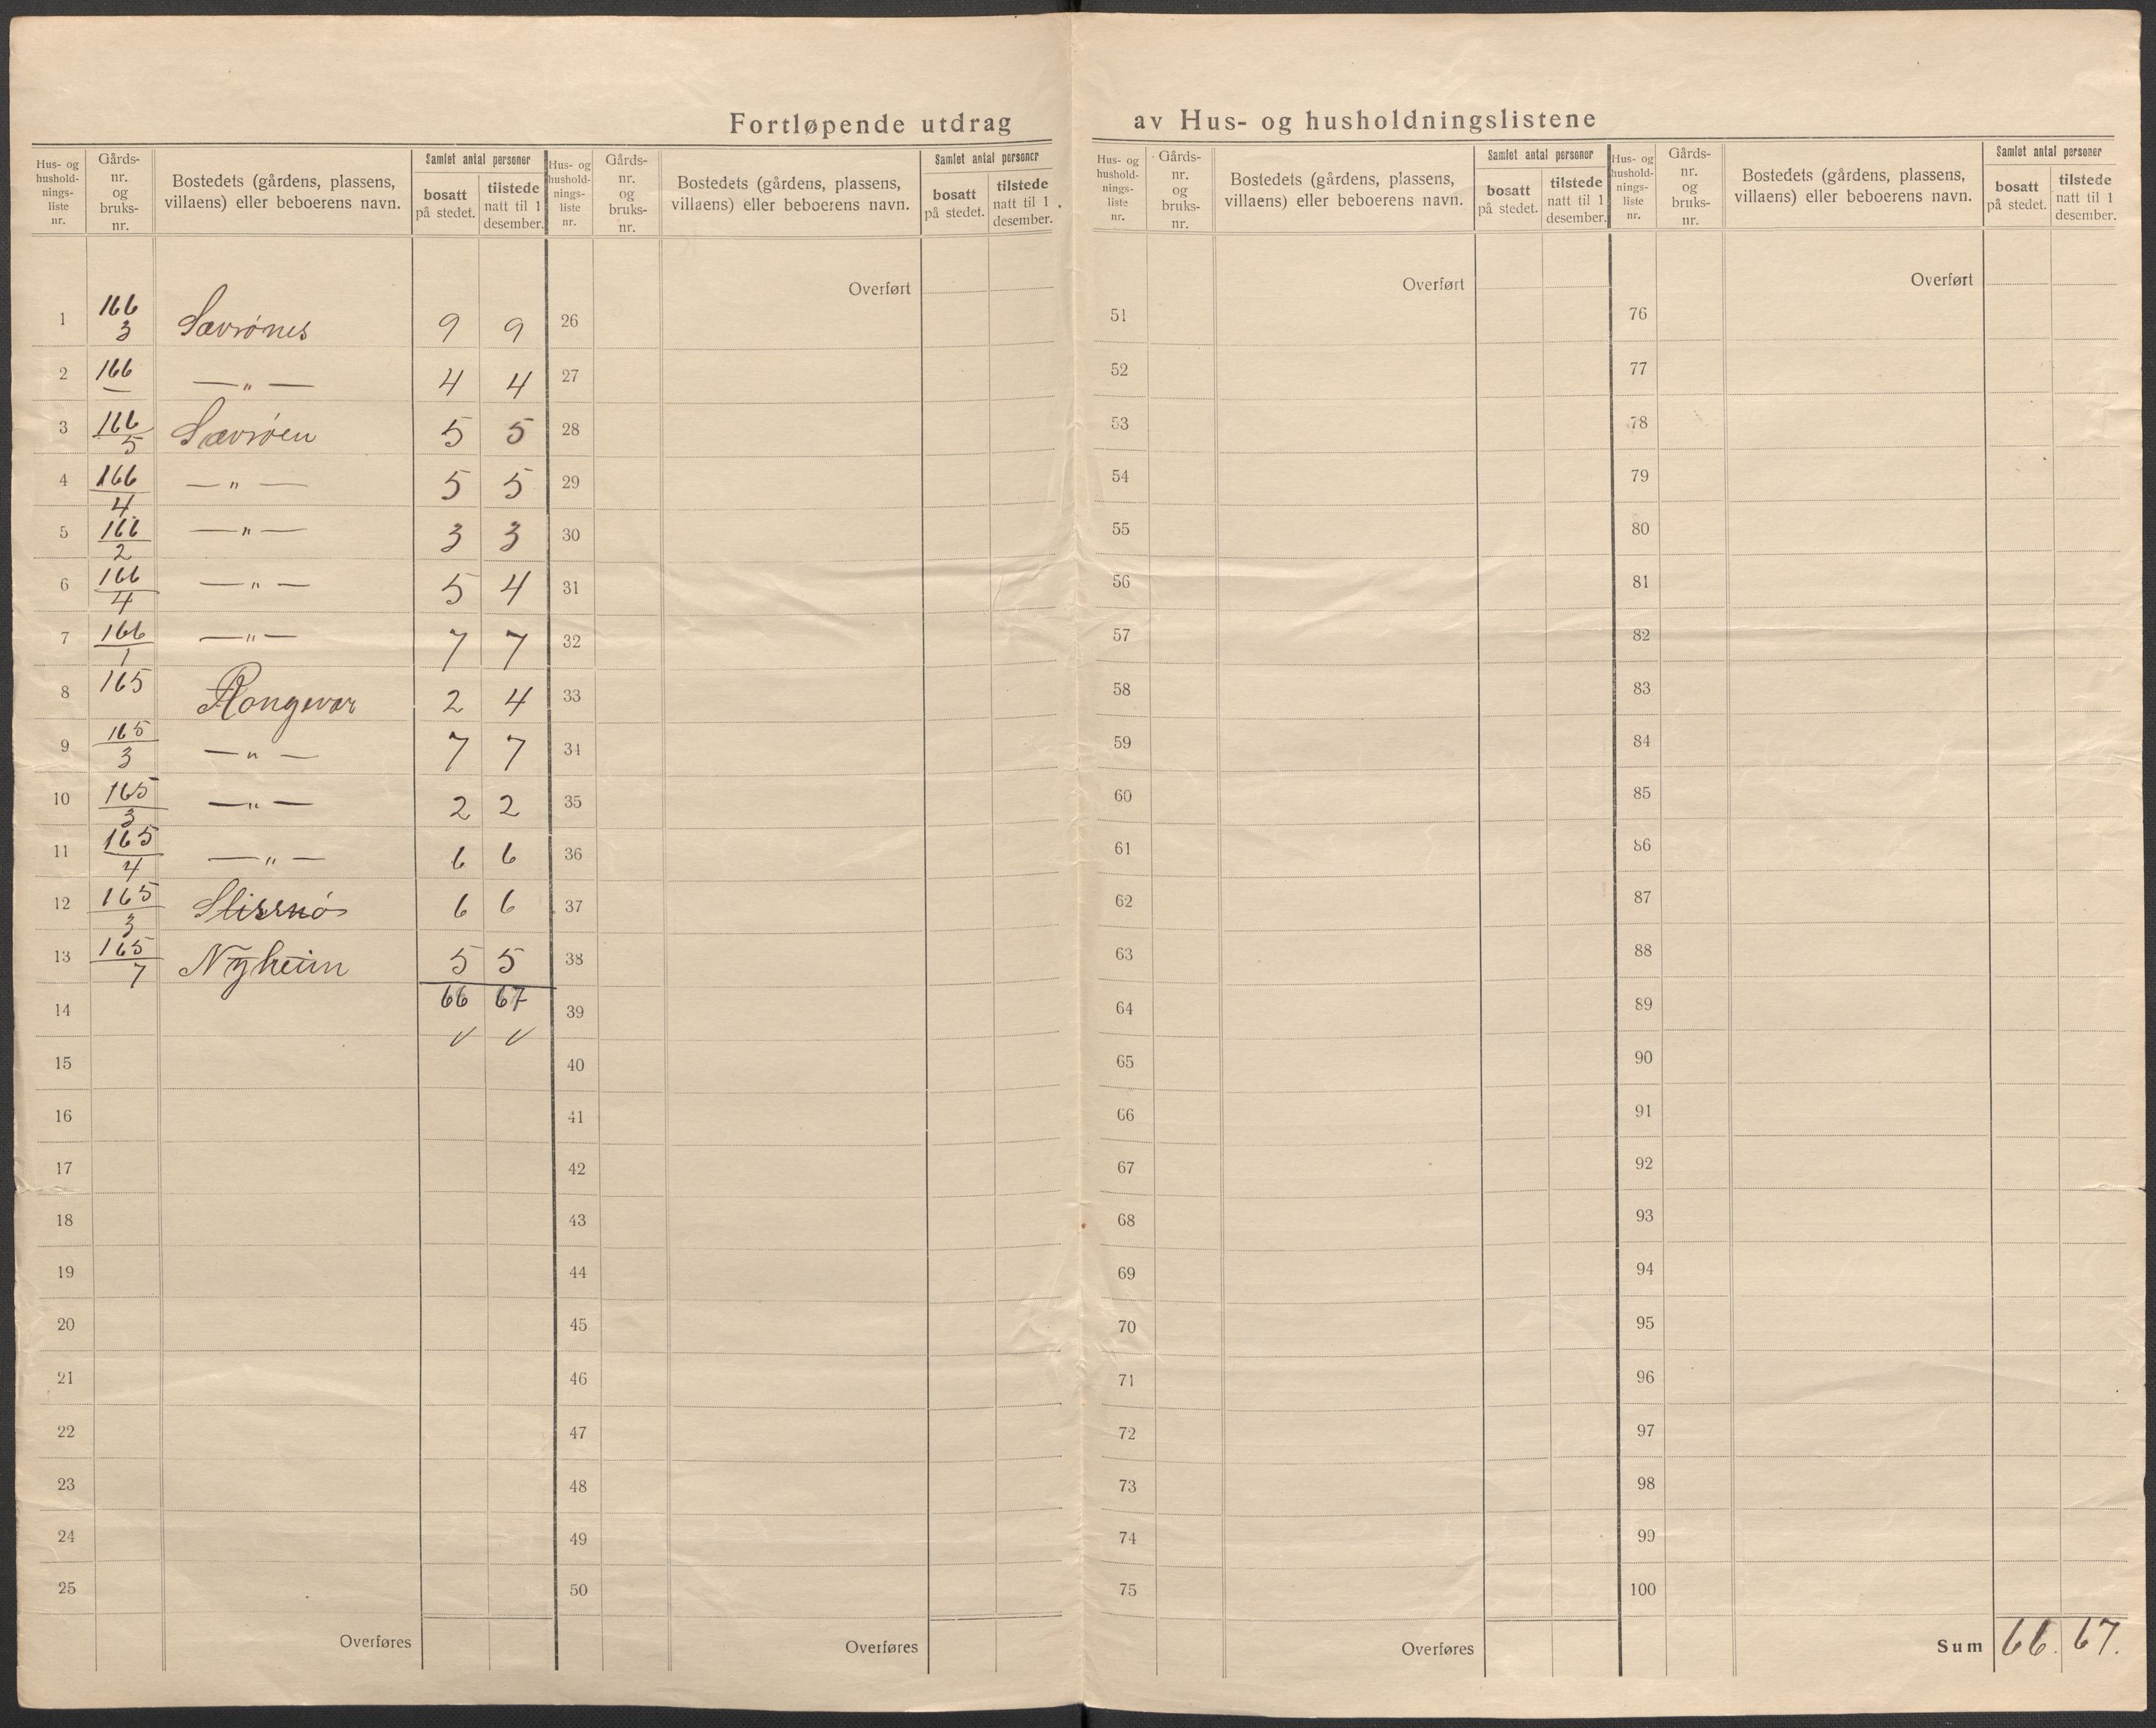 Fortløpende utdrag av Hus- og husholdningslistene
Hus- og hushold- nings- liste nr. | Gårds- nr. og bruks- nr. | Bostedets (gårdens, plassens, villaens) eller beboerens navn. | Samlet antal personer | bosatt på stedet. | tilstede natt til 1 desember.
1 166/3 Sævrønes 9 9
2 166/— —"— 4 4
3 166/5 Sævrøen 5 5
4 166/4 —"— 5 5
5 166/2 —"— 3 3
6 166/4 —"— 5 4
7 166/1 —"— 7 7
8 165 Rongevær 2 4
9 165/3 —"— 7 7
10 165/3 —"— 2 2
11 165/4 —"— 6 6
12 165/3 6 6
13 165/7 Nyheim 5 5
14 66 67
15
16
17
18
19
20
21
22
23
24
25
Overføres
Hus- og hushold- nings- liste nr. | Gårds- nr. og bruks- nr. | Bostedets (gårdens, plassens, villaens) eller beboerens navn. | Samlet antal personer | bosatt på stedet. | tilstede natt til 1 desember.
Overført
26
27
28
29
30
31
32
33
34
35
36
37
38
39
40
41
42
43
44
45
46
47
48
49
50
Overføres
Hus- og hushold- nings- liste nr. | Gårds- nr. og bruks- nr. | Bostedets (gårdens, plassens, villaens) eller beboerens navn. | Samlet antal personer | bosatt på stedet. | tilstede natt til 1 desember.
Overført
51
52
53
54
55
56
57
58
59
60
61
62
63
64
65
66
67
68
69
70
71
72
73
74
75
Overføres
Hus- og hushold- nings- liste nr. | Gårds- nr. og bruks- nr. | Bostedets (gårdens, plassens, villaens) eller beboerens navn. | Samlet antal personer | bosatt på stedet. | tilstede natt til 1 desember.
Overført
76
77
78
79
80
81
82
83
84
85
86
87
88
89
90
91
92
93
94
95
96
97
98
99
100
Sum 66. 67.